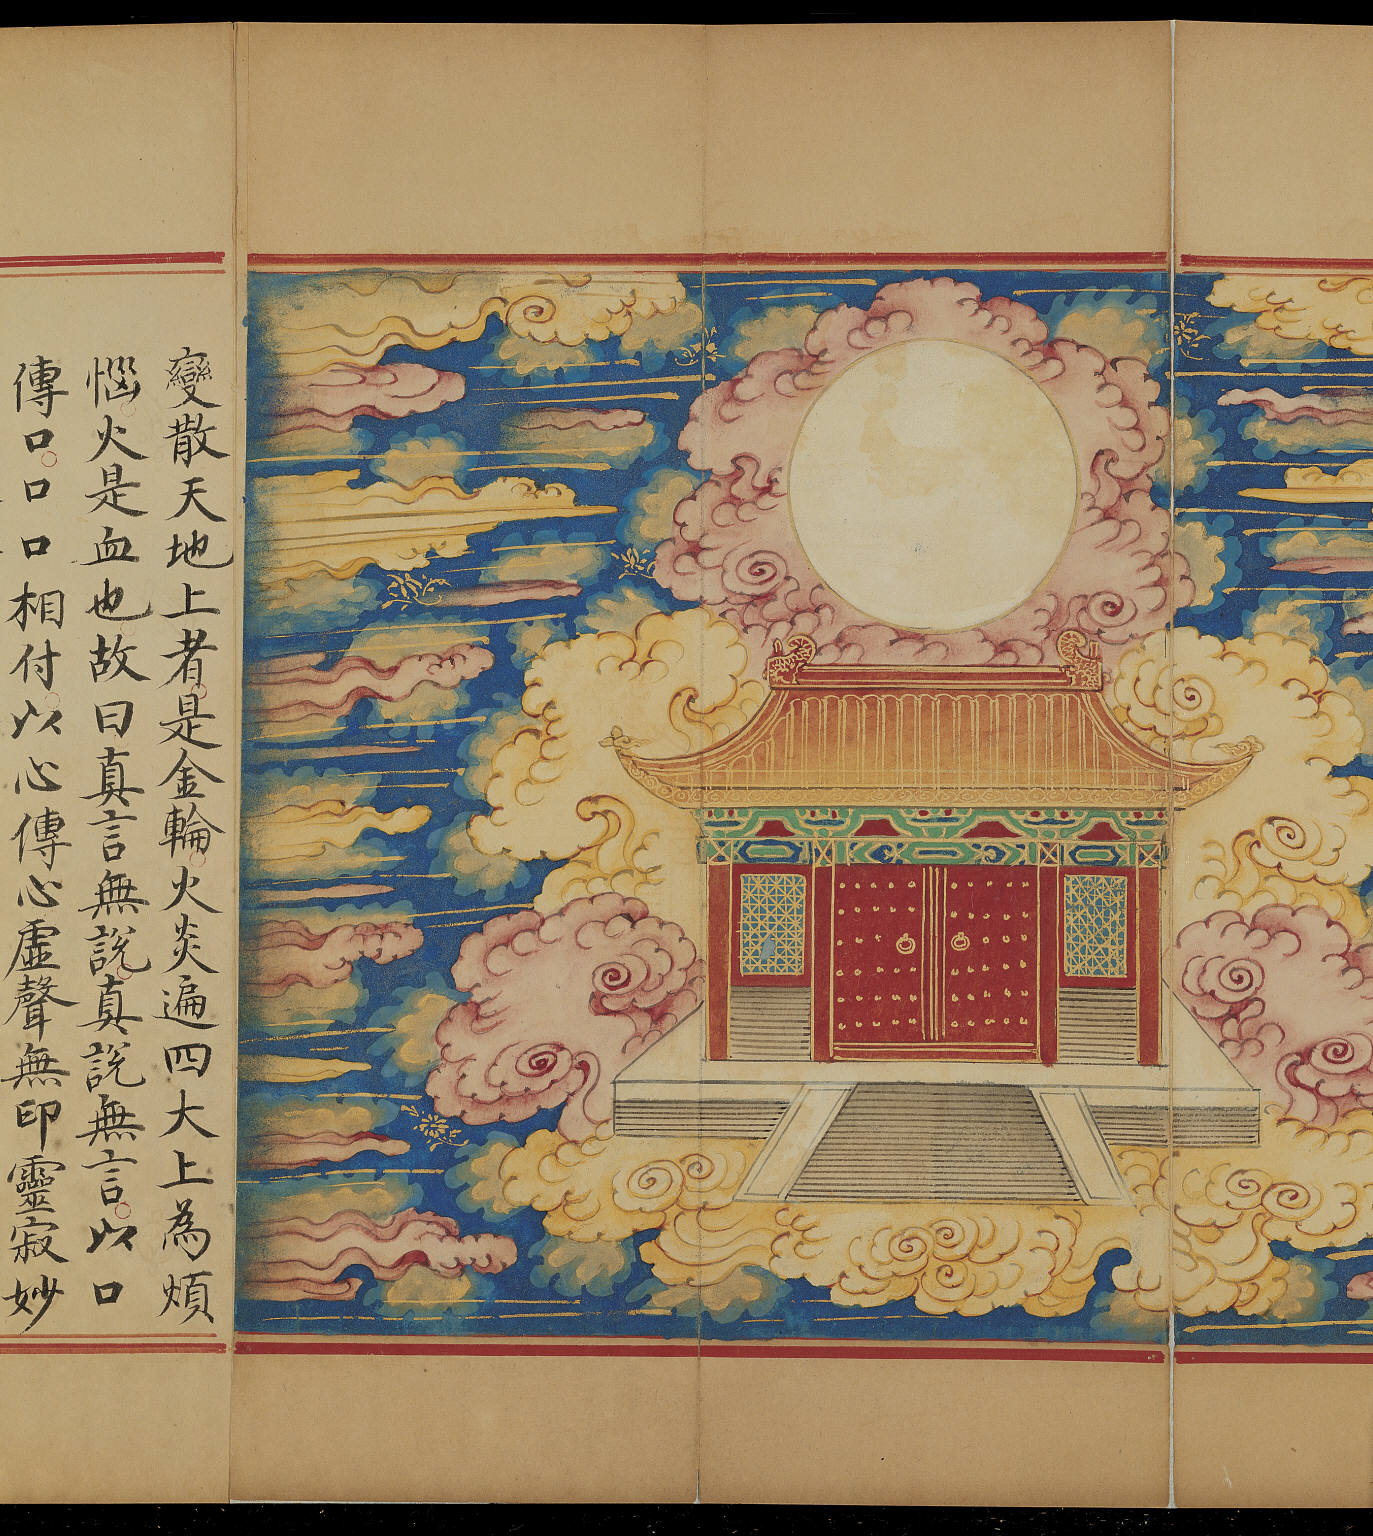 變散天地上者是金輪火炎遍四大上為煩
惱火是血也故曰真言無說真說無言以口
傳口口口相付以心傳心虛聲無印靈寂妙